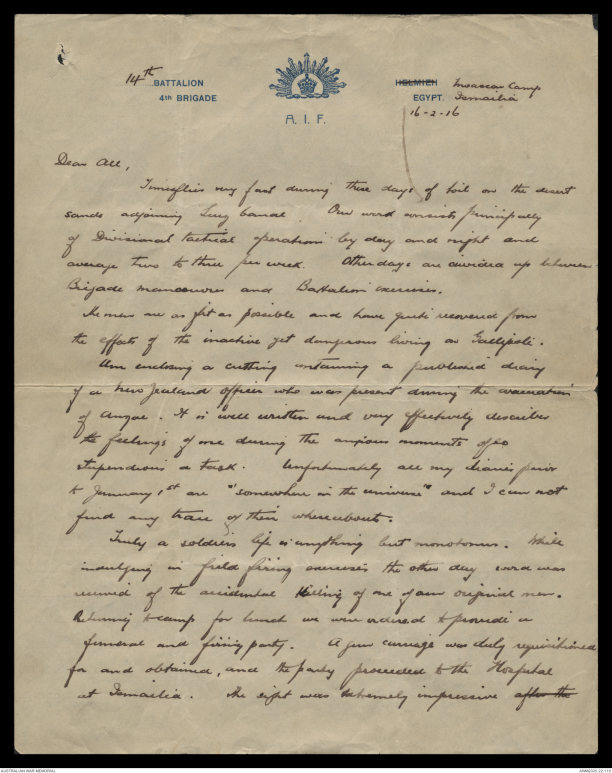 14th BATTALION
4th BRIGADE
A. I. F.
HELMIEH Moascar Camp
EGYPT. Ismailia
16-2-16
Dear All,
Time flies very fast during these days of toil on the desert
sands adjoining Suez Canal. Our work consists principally
of Divisional tactical operations by day and night and
average two to three per week. Other days are divided up between
Brigade manoeuvres and Battalion exercises.
The men are as fit as possible and have quite recovered from
the effects of the inactive yet dangerous living on Gallipoli.
Am enclosing a cutting containing a published diary
of a New Zealand officer who was present during the evacuation
of Anzac. It is well written and very effectively describes
the feelings of one during the anxious moments of so
stupendous a task. Unfortunately all my diaries prior
to January 1st are "somewhere in the universe" and I can not
find any trace of their whereabouts.
Truly a soldiers life is anything but monotonous. While
indulging in field firing exercises the other day word was
received of the accidental killing of one of our original men.
Returning to camp for lunch we were ordered to provide a
funeral and firing party. A gun carriage was duly requisitioned
for and obtained, and the party proceeded to the Hospital
at Ismailia. The sight was extremely impressive after the
AUSTRALIAN WAR MEMORIAL